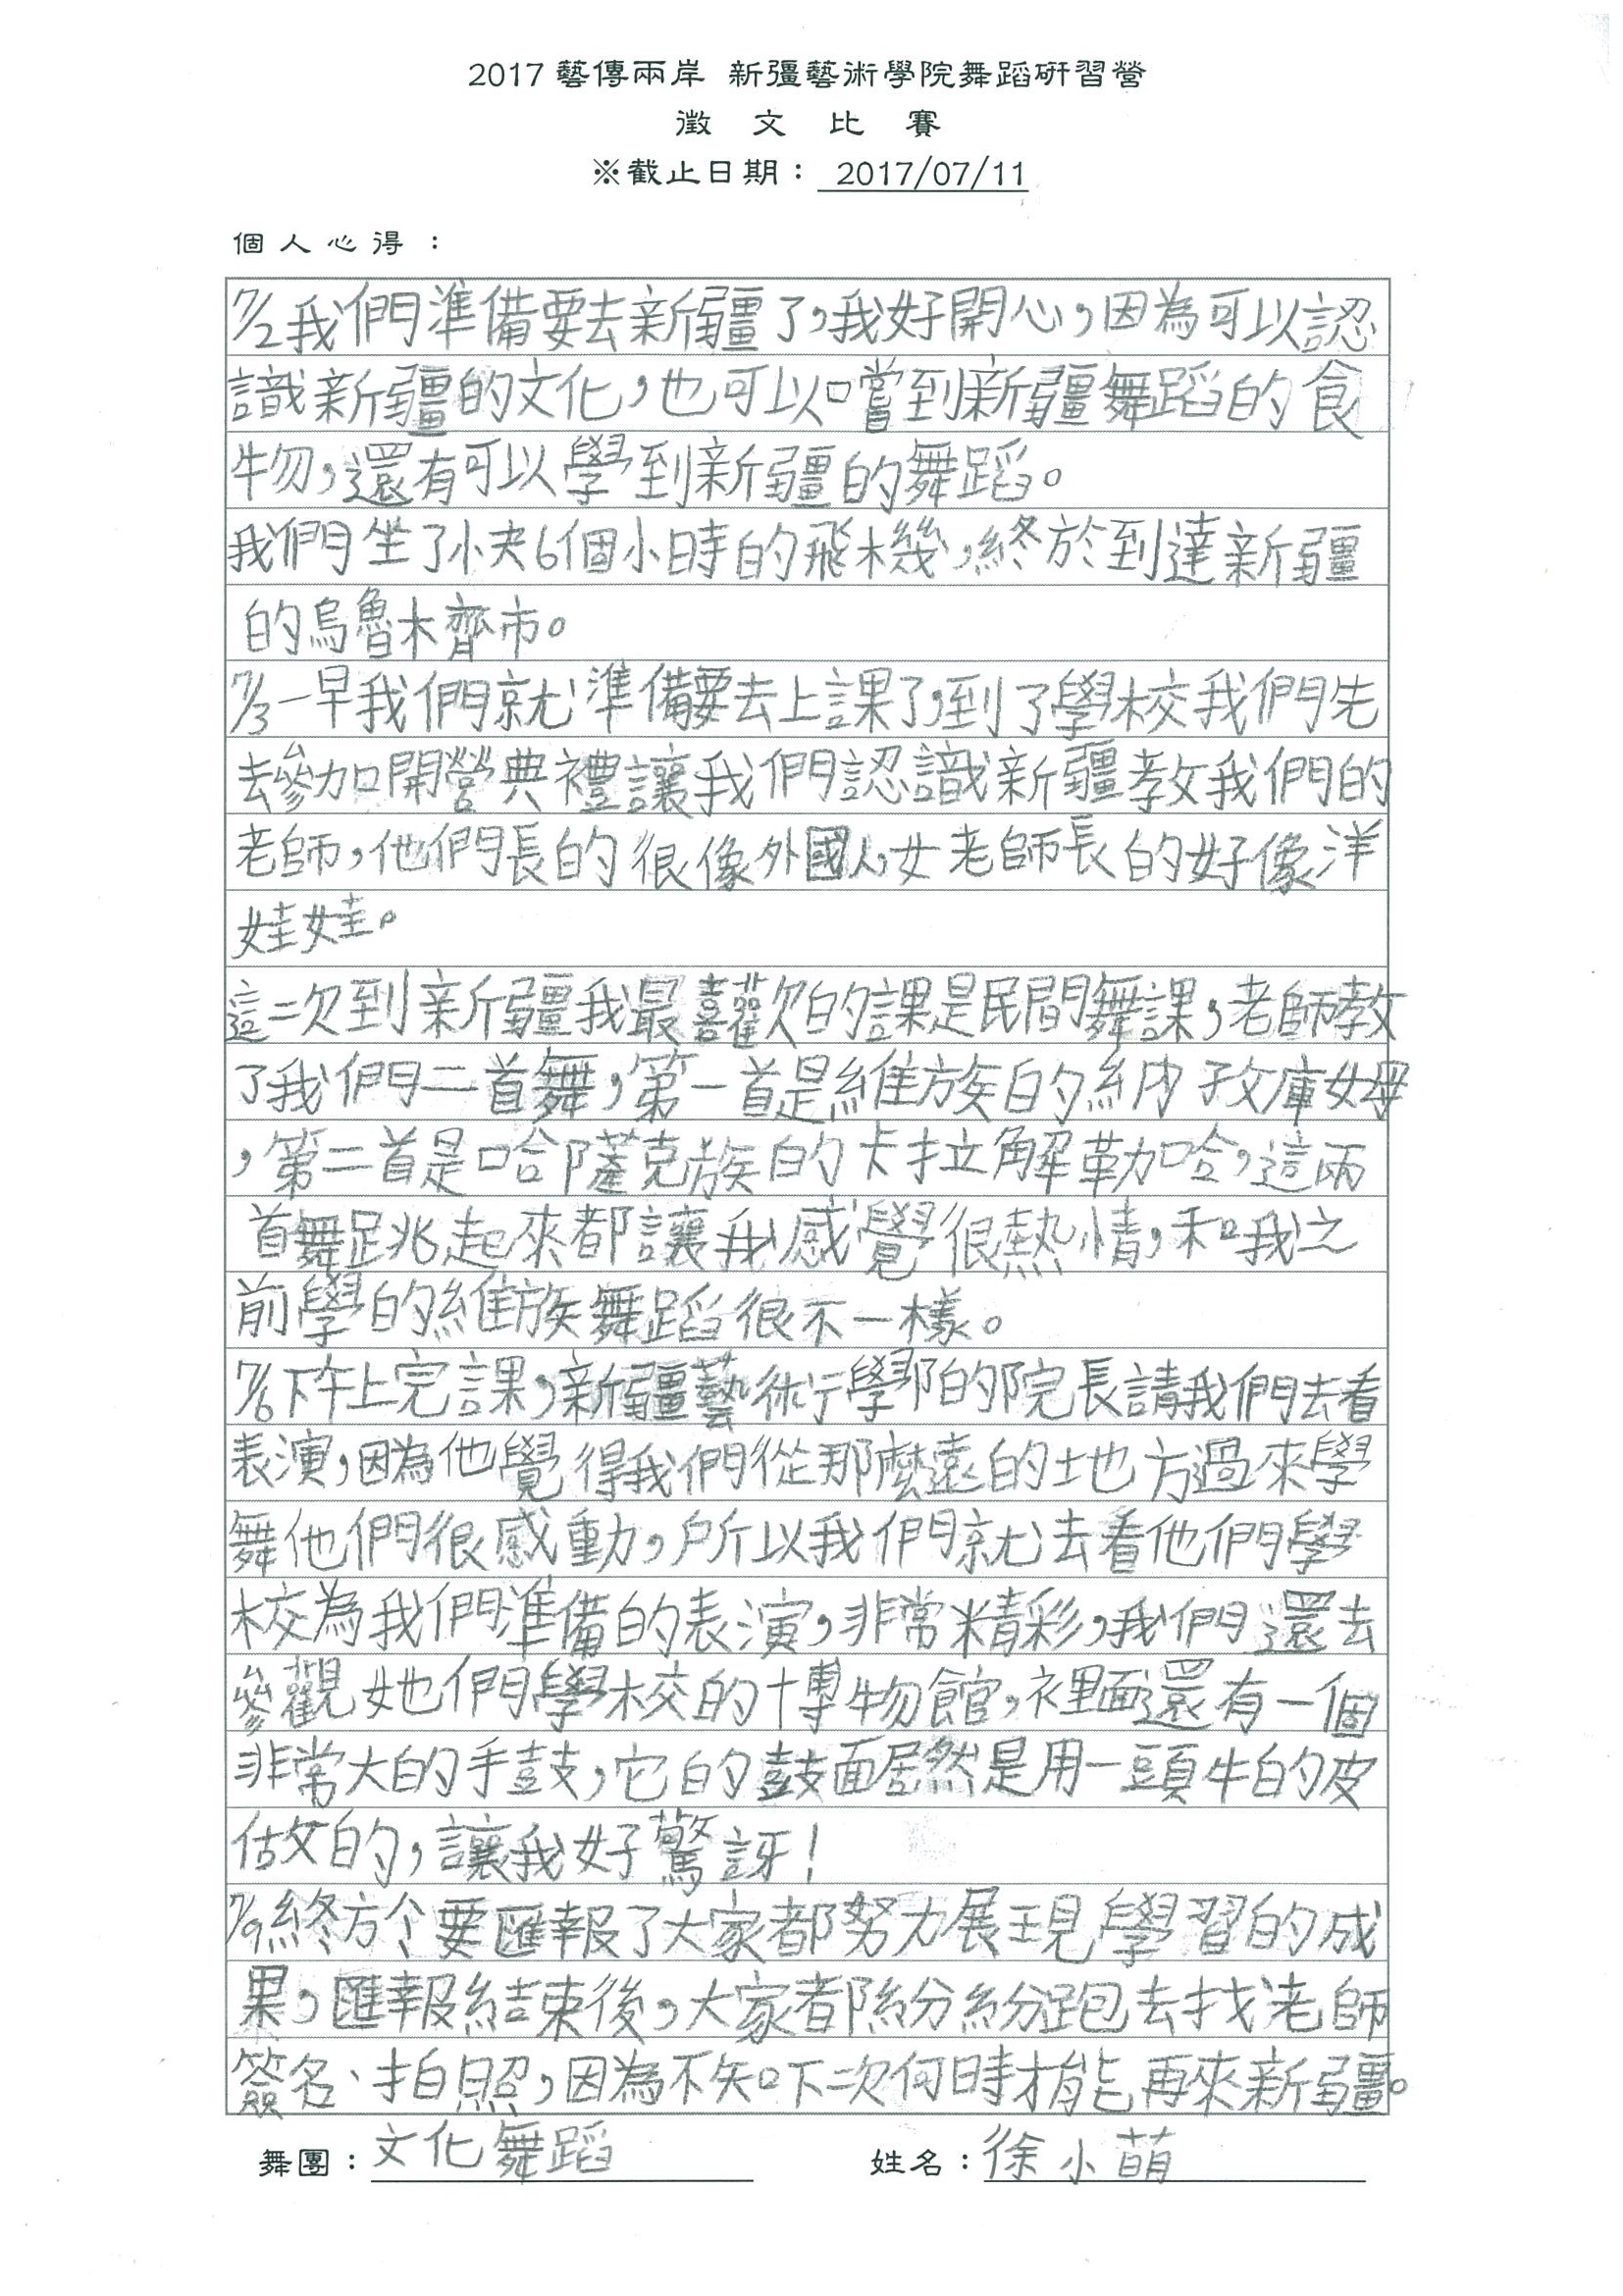 2017 藝傳兩岸 新疆藝術學院舞蹈研習營
徵文比賽
※截止日期： 2017/07/11
個人心得：
7/2我們準備要去新疆了，我好開心，因為可以認
識新疆的文化，也可以嚐到新疆舞蹈的食
物，還有可以學到新疆的舞蹈。
我們坐了快6個小時的飛機，終於到達新疆
的烏魯木齊市。
7/3一早我們就準備要去上課了，到了學校我們先
去參加開營典禮讓我們認識新疆教我們的
老師，他們長的很像外國人，女老師長的好像洋
娃娃。
這次到新疆我最喜歡的課是民間舞課，老師教
了我們二首舞，第一首是維族的納孜庫姆
，第二首是哈薩克族的卡拉角勒哈，這兩
首舞跳起來都讓我感覺很熱情，和我之
前學的維族舞蹈很不一樣。
7/6下午上完課，新疆藝術學那的院長請我們去看
表演，因為他覺得我們從那麼遠的地方過來學
舞他們很感動，所以我們就去看他們學
校為我們準備的表演，非常精彩，我們還去
參觀她們學校的博物館，裡面還有一個
非常大的手鼓，它的鼓面居然是用一頭牛的皮
做的，讓我好驚訝！
7/9終於要匯報了大家都努力展現學習的成
果，匯報結束後，大家都紛紛跑去找老師
簽名、拍照，因為不知下次何時才能再來新疆。
舞團：文化舞蹈 姓名：徐小萌